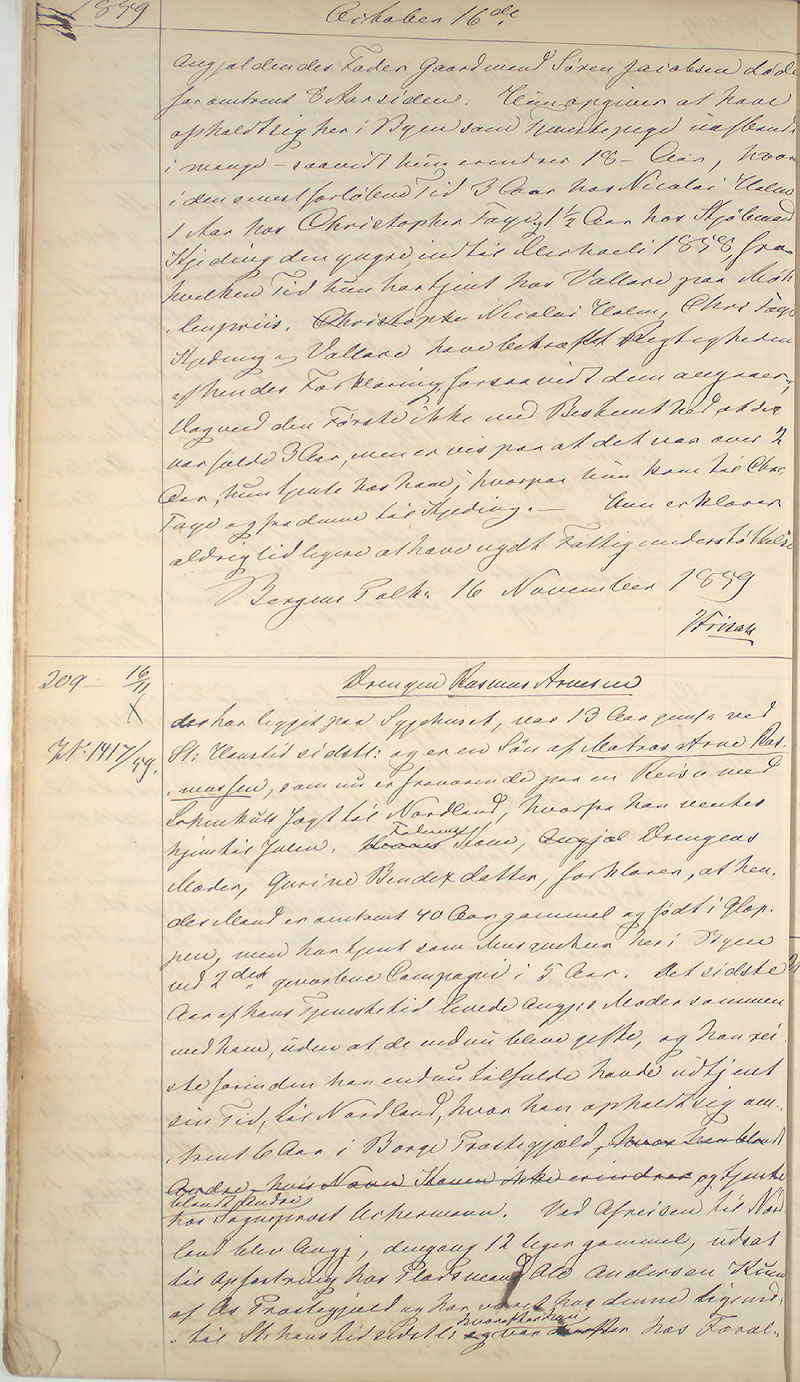 1859 October 16de
Angjældendes Fader Gaardmand Søren Jacobsen døde
for omtrent 8 Aar siden. Hun opgiver at have
opholdt sig her i Byen som Tjenestepige uafbrudt
i mange - saavidt hun erindrer 18 - Aar, hvoraf
i den senest forløbne Tid 3 Aar hos Nicolai Holm
1 Aar hos Christopher Faye, 1½ Aar hos Kjøbmand
Kjeding den yngre indtil Michaeli 1858, fra
hvilken Tid hun har tjent hos Vallace paa Møh-
lenpriis. Christophe Nicolai Holm, Chr: Faye
Kjeding og Vallace have bekræftet Rigtigheden
af hendes Forklaring forsaavidt dem angaaer,
dog veed den Første ikke med Bestemthed at det
var fulde 3 Aar, men er vis paa at det var over 2
Aar, hun tjente hos ham, hvorpaa hun kom til Chr.
Faye og fra denne til Kjeding. — Hun erklærer
aldrig tidligere at have nydt Fattigunderstøttelse
Bergens Politk. 16 November 1859
HFrisak
209 - 16/11 Drengen Rasmus Arnesen
der har ligget paa Sygehuset, var 13 Aar gml. ved
JN: 1417/59. St: Hanstid sidstl: og er en Søn af Matros Arne Ras-
mussen, som nu er fraværende paa en Reise med
Jagt til Nordland, hvorfra han ventes
hjem til Julen. Kone, Angjæl Drengens
Moder, Gurine Bendixdatter, forklarer, at hen-
des Mand er omtrent 40 Aar gammel og født i Glop-
pen, men har tjent som Musqueteer her i Byen
ved 2det gevorbne Compagni i 5 Aar. Det sidste
Aar af hans Tjenestetid levede Angj:s Moder sammen
med ham, uden at de endnu bleve gifte, og han rei-
ste forinden han endnu tilfulde havde udtjent
sin Tid, til Nordland, hvor han opholdt sig om-
trent 6 Aar i Borge Præstegjæld, hvor han blandt
Andre, hvis Navn Konen ikke erindrer og tjente
blandt Andre
hos Sogneprest Ackermann. Ved Afreisen til Nord
land blev Angj, dengang 12 Uger gammel, udsat
til Opfostring hos Pladsmand Ole Andersen
af Os Præstegjeld og har været hos denne lige ind-
til St: hanstid sidstl: hvorefter han og var derefter hos Foræl-